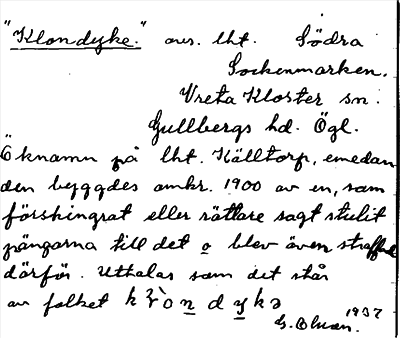 "Klondyke." avs. lht. Södra
Sockenmarken.
Vreta Kloster sn.
Gullbergs hd. Ögl.
Öknamn på lht. Källtorp, emedan
den byggdes omkr. 1900 av en, som
förskingrat eller rättare sagt stulit
pängarna till det o blev även straffad
därför. Uttalas som det står
av folket
1937
G. Olsson.